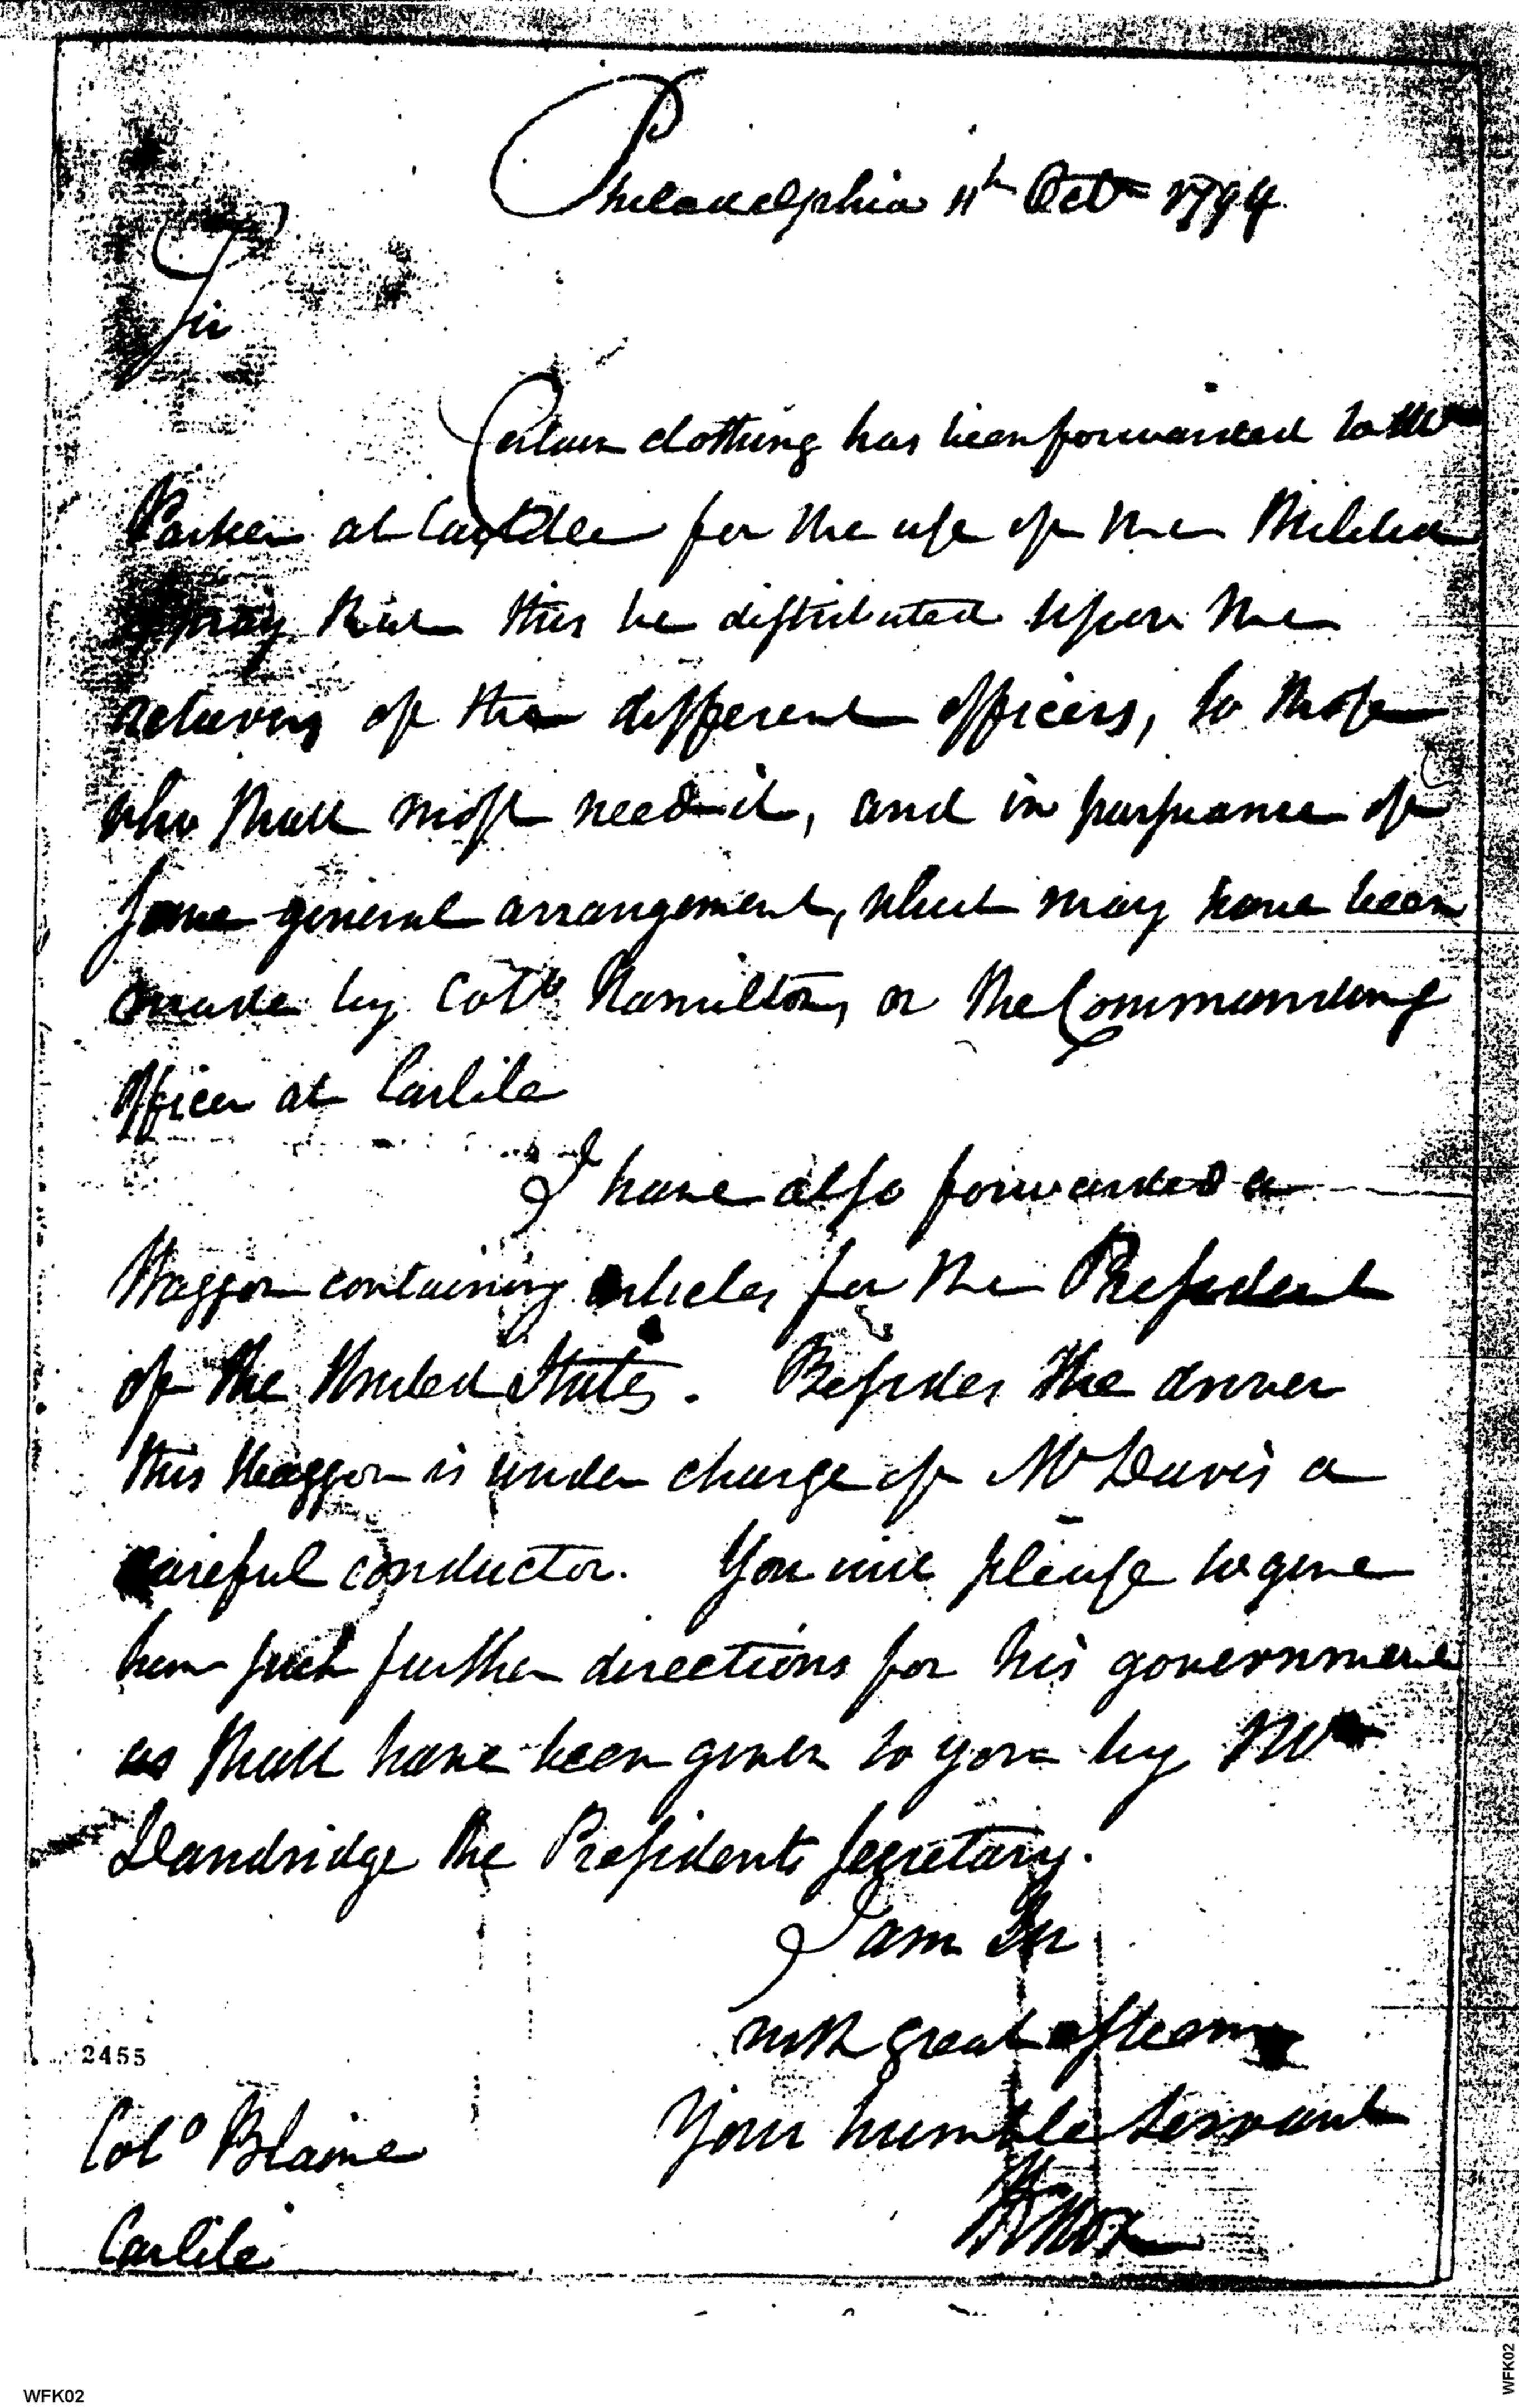 Philadelphia 11th Octr 1794
Sir
Certain clothing has been forwarded to Mr
Parker at Carlile for the use of the Militia
I pray that this be distributed upon the
returns of the different officers, to those
who shall most need it, and in pursuance of
some general arrangement, which may have been
made by Colo Hamilton, or the Commanding
officer at Carlile
I have also forwarded a
Waggon containing articles for the President
of the United States. Besides the driver
this Waggon is under charge of Mr Davis a
careful conductor. You will please to give
him such further directions for his government
as shall have been given to you by Mr
Dandridge the Presidents secretary.
I am Sir
with great esteem
Your humble servant
HKnox
2455
Colo Blaine
Carlile
WFK02
WFK02